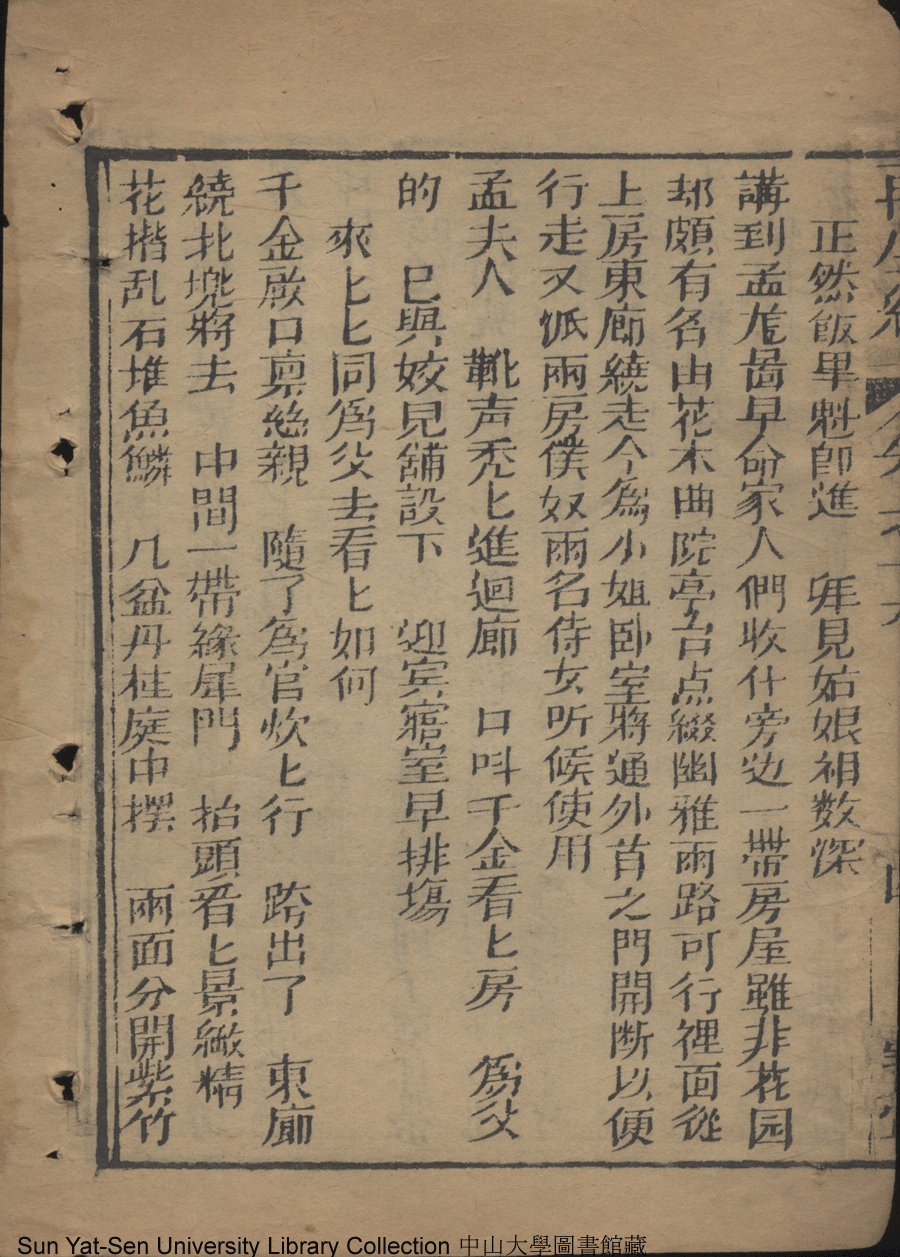 正然飯畢魁郎進　年見姑娘祖数深
講到孟尨啚早命家人們收什旁边一帶房屋雖非花园
却頗有名由花木曲院亭台点綴幽雅兩路可行裡面從
上房東廊繞走今爲小姐卧室將通外首之門開断以便
行走又派兩房僕奴兩名侍女听候使用
孟夫人　靴声禿匕進迴廊　口叫千金看匕房　爲父
的　已與姣兒舖設下　迎宾寢室早排塲
來匕匕同爲父去看匕如何
千金啟口禀慈親　隨了爲官欢匕行　跨出了　東廊
繞北堍將去　中間一帶緑屏門　抬頭看匕景緻精
花揩乱石堆魚鱗　几盆丹桂庭中擺　兩面分開紫竹
Sun Yat-Sen University Library Collection 中山大學圖書館藏